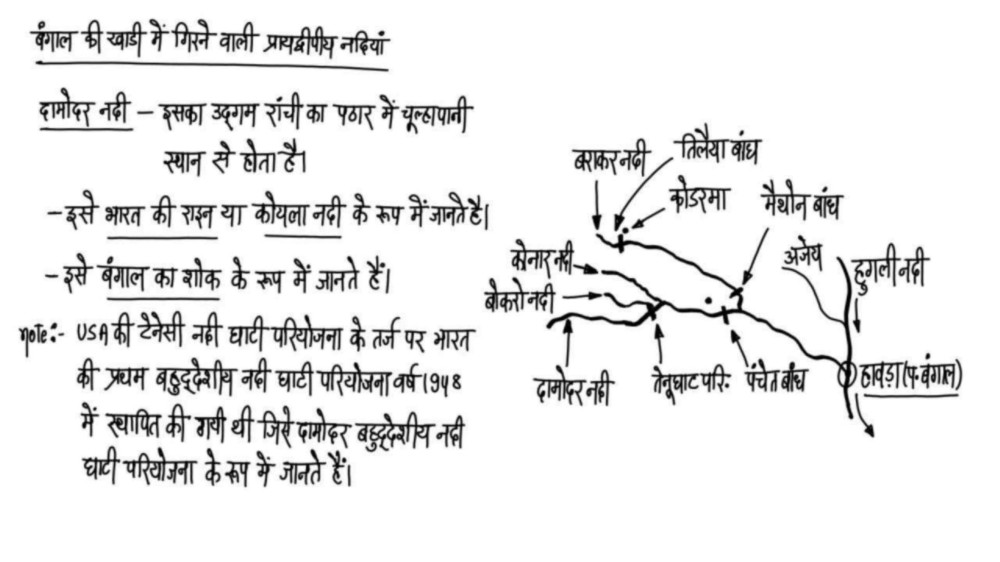 बंगाल की खाडी में गिरने वाली प्रायद्वीपीय नदियां
दामोदर नदी – इसका उद्गम रांची का पठार में चूल्हापानी
स्थान से होता है।
– इसे भारत की राइन या कोयला नदी के रूप में जानते है।
– इसे बंगाल का शोक के रूप में जानते हैं।
note:- USA की टेनेसी नदी घाटी परियोजना के तर्ज पर भारत
की प्रथम बहुद्देशीय नदी घाटी परियोजना वर्ष 1948
में स्थापित की गयी थी जिसे दामोदर बहुद्देशीय नदी
घाटी परियोजना के रूप में जानते हैं।
बराकर नदी
तिलैया बांध
कोडरमा
मैथोन बांध
अजेय
हुगली नदी
कोनार नदी
बोकारो नदी
दामोदर नदी
तेनूघाट परि॰
पंचेत बांध
हावड़ा (प. बंगाल)